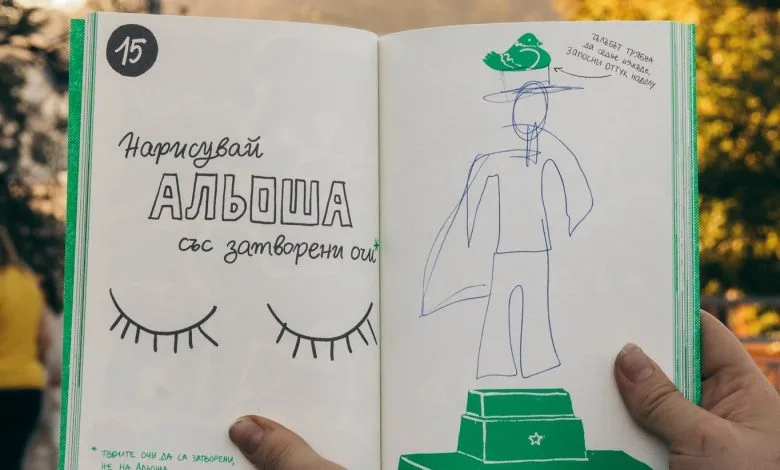 15
Нарисувай
АЛЬОША
със затворени очи*
* ТВОИТЕ ОЧИ ДА СА ЗАТВОРЕНИ,
НЕ НА АЛЬОША
ГЪЛЪБЪТ ТРЯБВА
ДА СЕДНЕ НЯКЪДЕ,
ЗАПОЧНИ ОТТУК НАДОЛУ